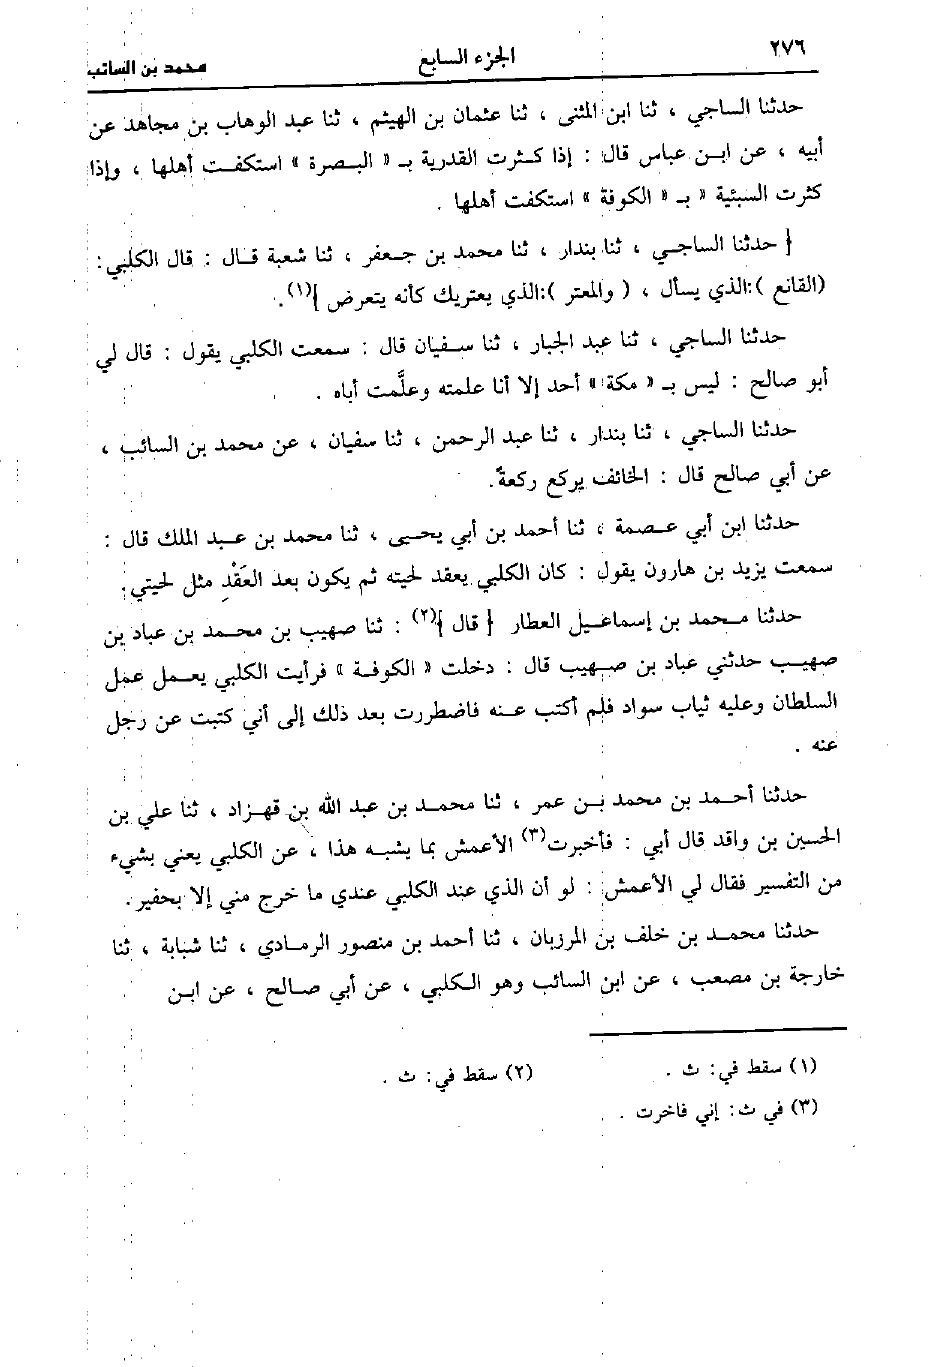 ٢٧٦
الجزء السابع
محمد بن السائب
حدثنا الساجي ، ثنا ابن المثنى ، ثنا عثمان بن الهيثم ، ثنا عبد الوهاب بن مجاهد عن
أبيه ، عن ابن عباس قال : إذا كثرت القدرية بـ « البصرة » استكفت أهلها ، وإذا
كثرت السبئية « بـ « الكوفة » استكفت أهلها .
{ حدثنا الساجي ، ثنا بندار ، ثنا محمد بن جعفر ، ثنا شعبة قال : قال الكلبي :
(القانع ):الذي يسأل ، ( والمعتر ):الذي يعتريك كأنه يتعرض }(١).
حدثنا الساجي ، ثنا عبد الجبار ، ثنا سفيان قال : سمعت الكلبي يقول : قال لي
أبو صالح : ليس بـ « مكة » أحد إلا أنا علمته وعلَّمت أباه .
حدثنا الساجي ، ثنا بندار ، ثنا عبد الرحمن ، ثنا سفيان ، عن محمد بن السائب ،
عن أبي صالح قال : الخائف يركع ركعةً.
حدثنا ابن أبي عصمة ، ثنا أحمد بن أبي يحيى ، ثنا محمد بن عبد الملك قال :
سمعت يزيد بن هارون يقول : كان الكلبي يعقد لحيته ثم يكون بعد العَقْدِ مثل لحيتي.
حدثنا محمد بن إسماعيل العطار { قال }(٢) : ثنا صهيب بن محمد بن عباد بن
صهيب حدثني عباد بن صهيب قال : دخلت « الكوفة » فرأيت الكلبي يعمل عمل
السلطان وعليه ثياب سواد فلم أكتب عنه فاضطررت بعد ذلك إلى أني كتبت عن رجل
عنه .
حدثنا أحمد بن محمد بن عمر ، ثنا محمد بن عبد الله بن قهزاد ، ثنا علي بن
الحسين بن واقد قال أبي : فأخبرت(٣) الأعمش بما يشبه هذا ، عن الكلبي يعني بشيء
من التفسير فقال لي الأعمش : لو أن الذي عند الكلبي عندي ما خرج مني إلا بحفير.
حدثنا محمد بن خلف بن المرزبان ، ثنا أحمد بن منصور الرمادي ، ثنا شبابة ، ثنا
خارجة بن مصعب ، عن ابن السائب وهو الكلبي ، عن أبي صالح ، عن ابن
(١) سقط في: ث .
(٢) سقط في: ث .
(٣) في ث: إني فاخرت .